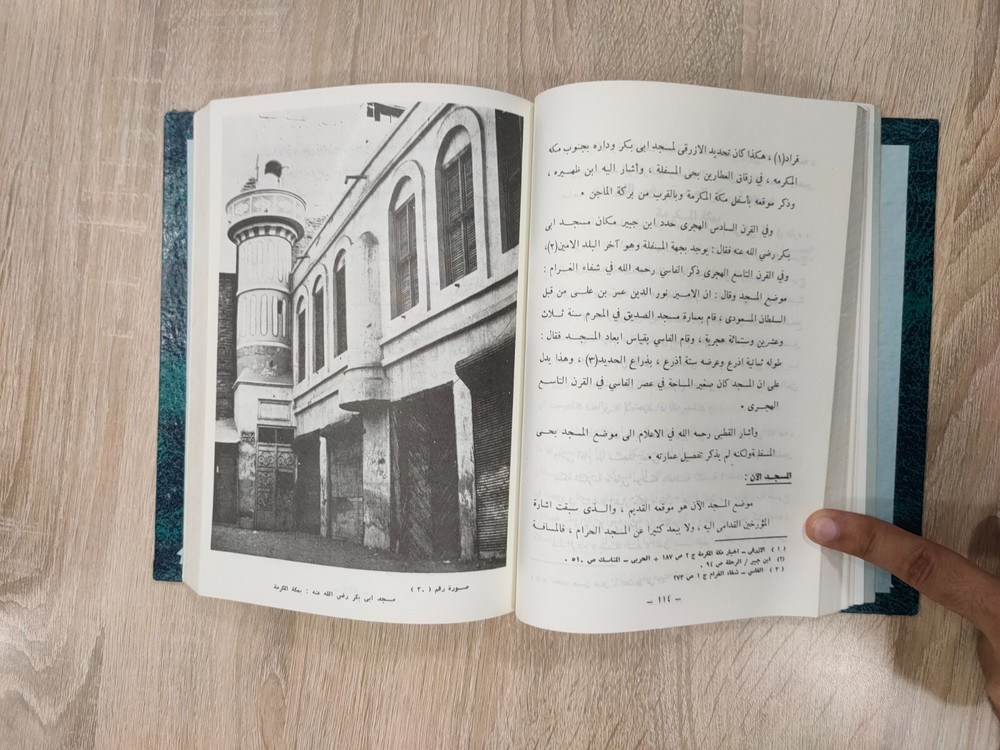 قراد(١) ، هكذا كان تحديد الازرقى لمسجد ابى بكر وداره بجنوب مكه
المكرمه ، في زقاق العطارين بحى المسفلة ، وأشار اليه ابن ظهيره ،
وذكر موقعه بأسفل مكة المكرمة وبالقرب من بركة الماجن .
وفي القرن السادس الهجرى حدد ابن جبير مكان مسجد ابى
بكر رضي الله عنه فقال : يوجد بجهة المسفلة وهو آخر البلد الامين(٢)،
وفي القرن التاسع الهجرى ذكر الفاسي رحمه الله في شفاء الغرام :
موضع المسجد وقال : ان الامير نور الدين عمر بن على من قبل
السلطان المسعودى ، قام بعمارة مسجد الصديق في المحرم سنة ثلاث
وعشرين وستمائة هجرية ، وقام الفاسي بقياس ابعاد المسجد فقال :
طوله ثمانية اذرع وعرضه ستة أذرع ، بذراع الحديد(٣) ، وهذا يدل
على ان المسجد كان صغير المساحة في عصر الفاسي في القرن التاسع
الهجرى .
وأشار القطبى رحمه الله في الاعلام الى موضع المسجد بحى
المسفلة ولكنه لم يذكر تفصيل عمارته .
المسجد الآن :
موضع المسجد الآن هو موقعه القديم ، والذى سبقت اشارة
المؤرخين القدامى اليه ، ولا يبعد كثيرا عن المسجد الحرام ، فالمسافة
(١) الازرقى ــ اخبار مكة المكرمة ج ٢ ص ١٨٧ + الحربى ــ المناسك ص ٥١٠ .
(٢) ابن جبير / الرحلة ص ٩٤ .
(٣) الفاسي ــ شفاء الغرام ج ١ ص ٢٧٣
ــ ١١٤ ــ
صورة رقم (٣٠)
مسجد ابى بكر رضى الله عنه : بمكة المكرمة